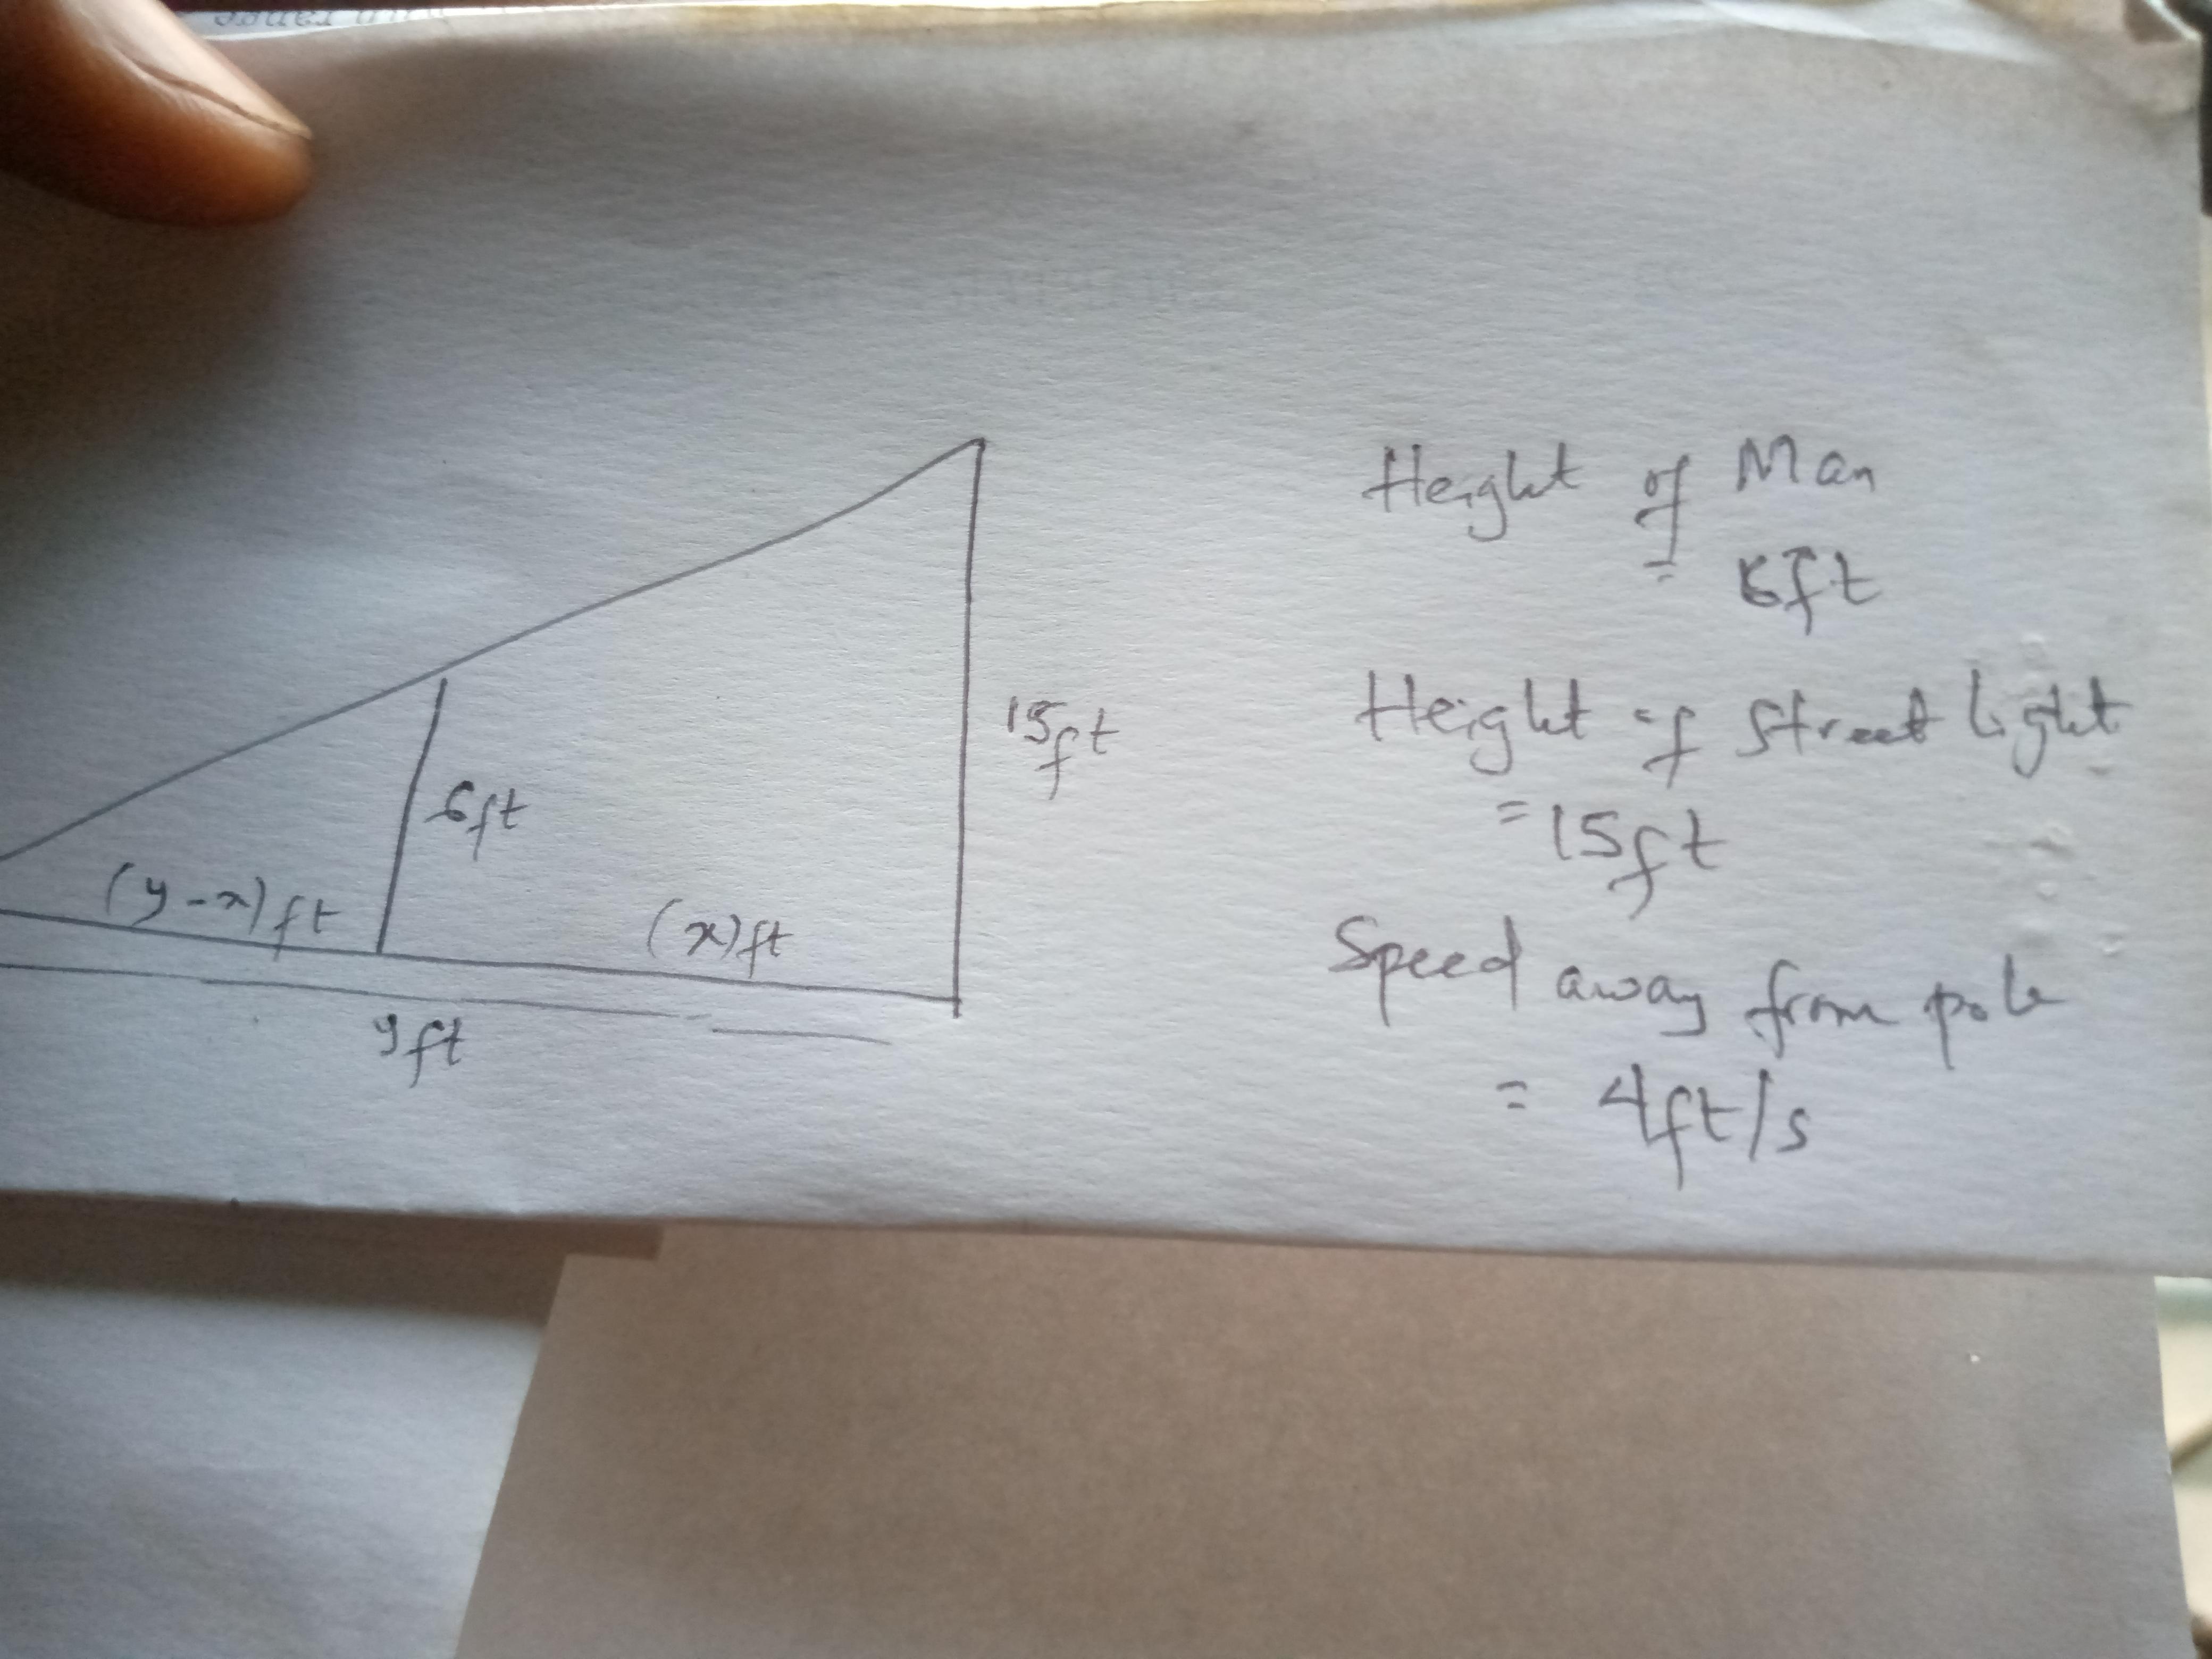 15ft
6ft
(y-x)ft
(x)ft
yft
Height of Man
= 6ft
Height of Street light
= 15ft
Speed away from pole
= 4ft/s